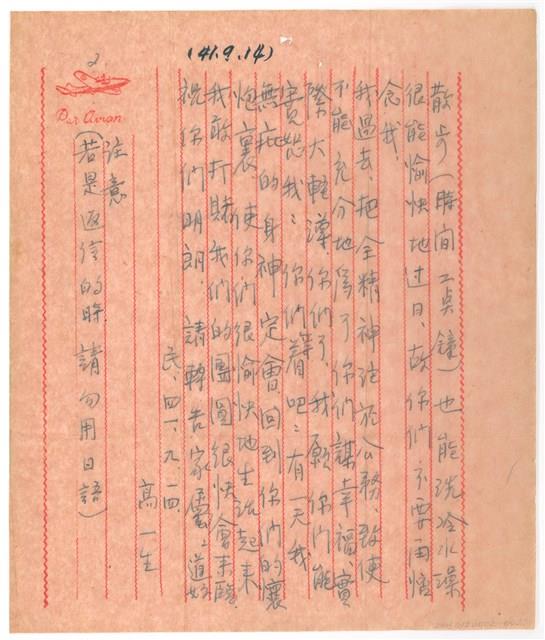 (41.9.14)
2
Par Avion
散步(時間二点鐘)也能洗冷水澡
很能愉快地过日,故你們不要再悟
念我,
我過去,把全精神注於公務,致使
不能充分地為了你們謀幸福,實
際大輕漠你們了,我願你們能
寬恕我:你們等吧:有一天我
無疵的身神定會回到你們的懷
炮裏,使你們很愉快地生活起來
我敢打賭我們的團圓很快會來臨
祝你們明朗,請轉告家屬道好
民、四一、九、一四、
高一生
注意
(若是返信的時請勿用日語)